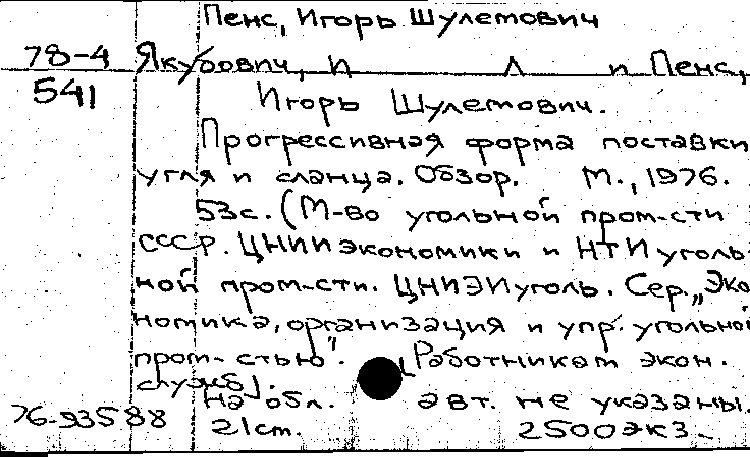 Пенс, Игорь Шулемович
78-4 Якубович, И Л и Пенс,
541 Игорь Шулемович.
Прогрессивная форма поставки
угля и сланца. Обзор. М., 1976.
53с. (М-во угольной пром-сти
СССР. ЦНИИэкономики и НТИуголь-
ной пром-сти. ЦНИЭИуголь. Сер. „Эко
номика, организация и упр. угольной
пром-стью". (Работникам экон.
служб).
На обл. авт. не указаны.
76-93588 21см. 2500экз.